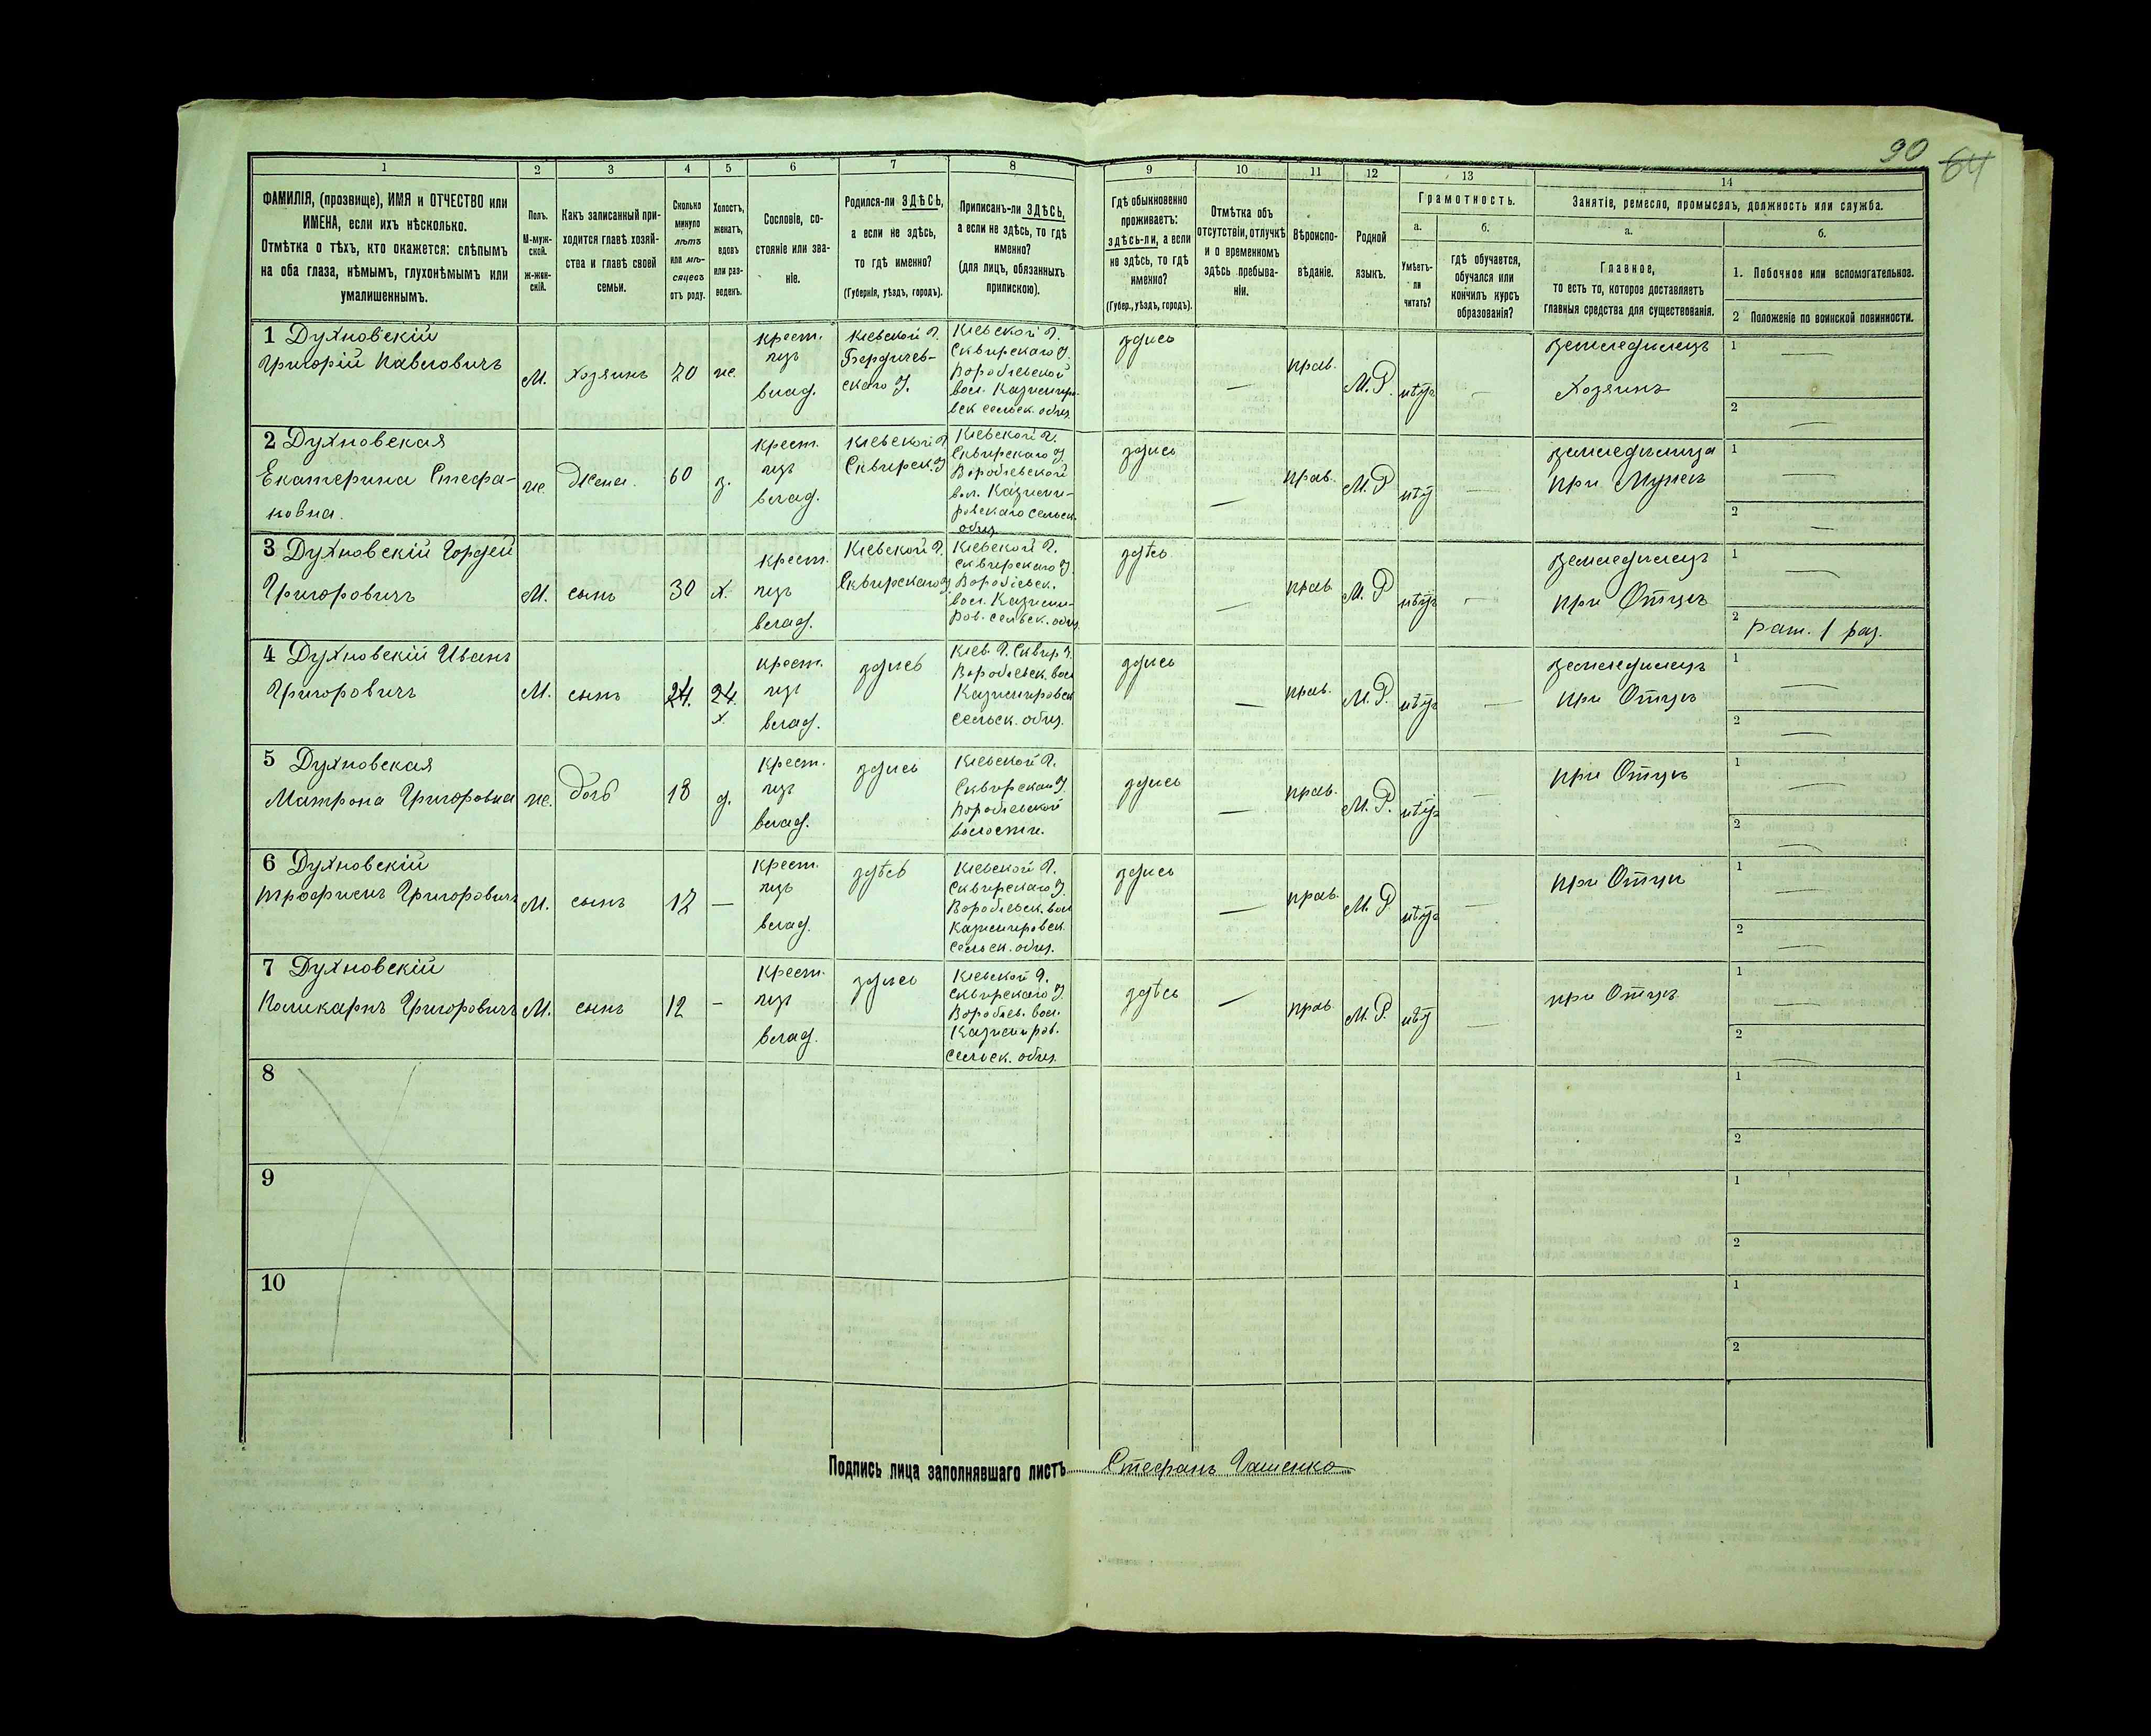 90 64
1 2 3 4 5 6 7 8 9 10 11 12 13 14
ФАМИЛІЯ, (прозвище), ИМЯ и ОТЧЕСТВО или
ИМЕНА, если ихъ нѣсколько.
Отмѣтка о тѣхъ, кто окажется: слѣпымъ
на оба глаза, нѣмымъ, глухонѣмымъ или
умалишеннымъ.
Полъ.
М-муж-
ской.
ж-жен-
скій.
Какъ записанный при-
ходится главѣ хозяй-
ства и главѣ своей
семьи.
Сколько
минуло
лѣтъ
или мѣ-
сяцевъ
отъ роду.
Холостъ,
женатъ,
вдовъ
или раз-
веденъ.
Сословіе, со-
стояніе или зва-
ніе.
Родился-ли ЗДѢСЬ,
а если не здѣсь,
то гдѣ именно?
(Губернія, уѣздъ, городъ).
Приписанъ-ли ЗДѢСЬ,
а если не здѣсь, то гдѣ
именно?
(для лицъ, обязанныхъ
припискою).
Гдѣ обыкновенно
проживаетъ:
здѣсь-ли, а если
не здѣсь, то гдѣ
именно?
(Губер., уѣздъ, городъ).
Отмѣтка объ
отсутствіи, отлучкѣ
и о временномъ
здѣсь пребыва-
ніи.
Вѣроиспо-
вѣданіе.
Родной
языкъ.
Грамотность.
а.
Умѣетъ-
ли
читать?
б.
гдѣ обучается,
обучался или
кончилъ курсъ
образованія?
Занятіе, ремесло, промыселъ, должность или служба.
а.
Главное,
то есть то, которое доставляетъ
главныя средства для существованія.
б.
1. Побочное или вспомогательное.
2 Положеніе по воинской повинности.
1 Духновскій
Григорій Павловичъ
М.
Хозяинъ
70
же.
крест.
изъ
влад.
Кіевской Г.
Бердичев-
скаго У.
Кіевской Г.
Сквирскаго У.
Воробіевской
вол. Казимиро-
век сельск. общ.
здѣсь
—
прав.
М.Р.
нѣтъ
—
земледѣлецъ
Хозяинъ
1 —
2 —
2 Духновская
Екатерина Стефа-
новна.
же.
Жена.
60
з.
крест.
изъ
влад.
Кіевской Г.
Сквирск. У
Кіевской Г.
Сквирскаго У
Воробіевской
вол. Казими-
ровскаго сельск.
общ.
здѣсь
—
прав.
М.Р
нѣт
—
земледѣлица
при Мужѣ
1 —
2 —
3 Духновскій Гордей
Григоровичъ
М.
сынъ
30
х.
крест.
изъ
влад.
Кіевской Г.
Сквирскаго У.
Кіевской Г.
Сквирскаго У.
Воробіевск.
вол. Казими-
ров. сельск. общ.
здѣсь
—
прав
М.Р
нѣтъ
—
земледѣлецъ
при Отцѣ
1 —
2 рат. 1 раз.
4 Духновскій Иванъ
Григоровичъ
М.
сынъ
24.
24.
х.
крест.
изъ
влад.
здѣсь
Кіев. Г. Сквир У.
Воробіевск. вол
Казимировск
сельск. общ.
здѣсь
—
прав.
М.Р.
нѣтъ
—
земледѣлецъ
при Отцѣ
1 —
2 —
5 Духновская
Матрона Григоровна
же.
дочь
18
д.
крест.
изъ
влад.
здѣсь
Кіевской Г.
Сквирскаго У.
Воробіевской
волости.
здѣсь
—
прав.
М.Р.
нѣтъ
—
при Отцѣ
1 —
2 —
6 Духновскій
Трофимъ Григоровичъ
М.
сынъ
12
—
крест.
изъ
влад.
здѣсь
Кіевской Г.
Сквирскаго У.
Воробіевск. вол
Казимировск.
сельск. общ.
здѣсь
—
прав.
М.Р
нѣтъ
—
при Отцѣ
1 —
2 —
7 Духновскій
Поликарпъ Григоровичъ
М.
сынъ
12
—
крест.
изъ
влад.
здѣсь
Кіевской Г.
Сквирскаго У.
Воробіев. вол.
Казимиров.
сельск. общ.
здѣсь
—
прав.
М.Р.
нѣт
—
при Отцѣ
1 —
2 —
8
1
2
9
1
2
10
1
2
Подпись лица заполнявшаго листъ Стефанъ